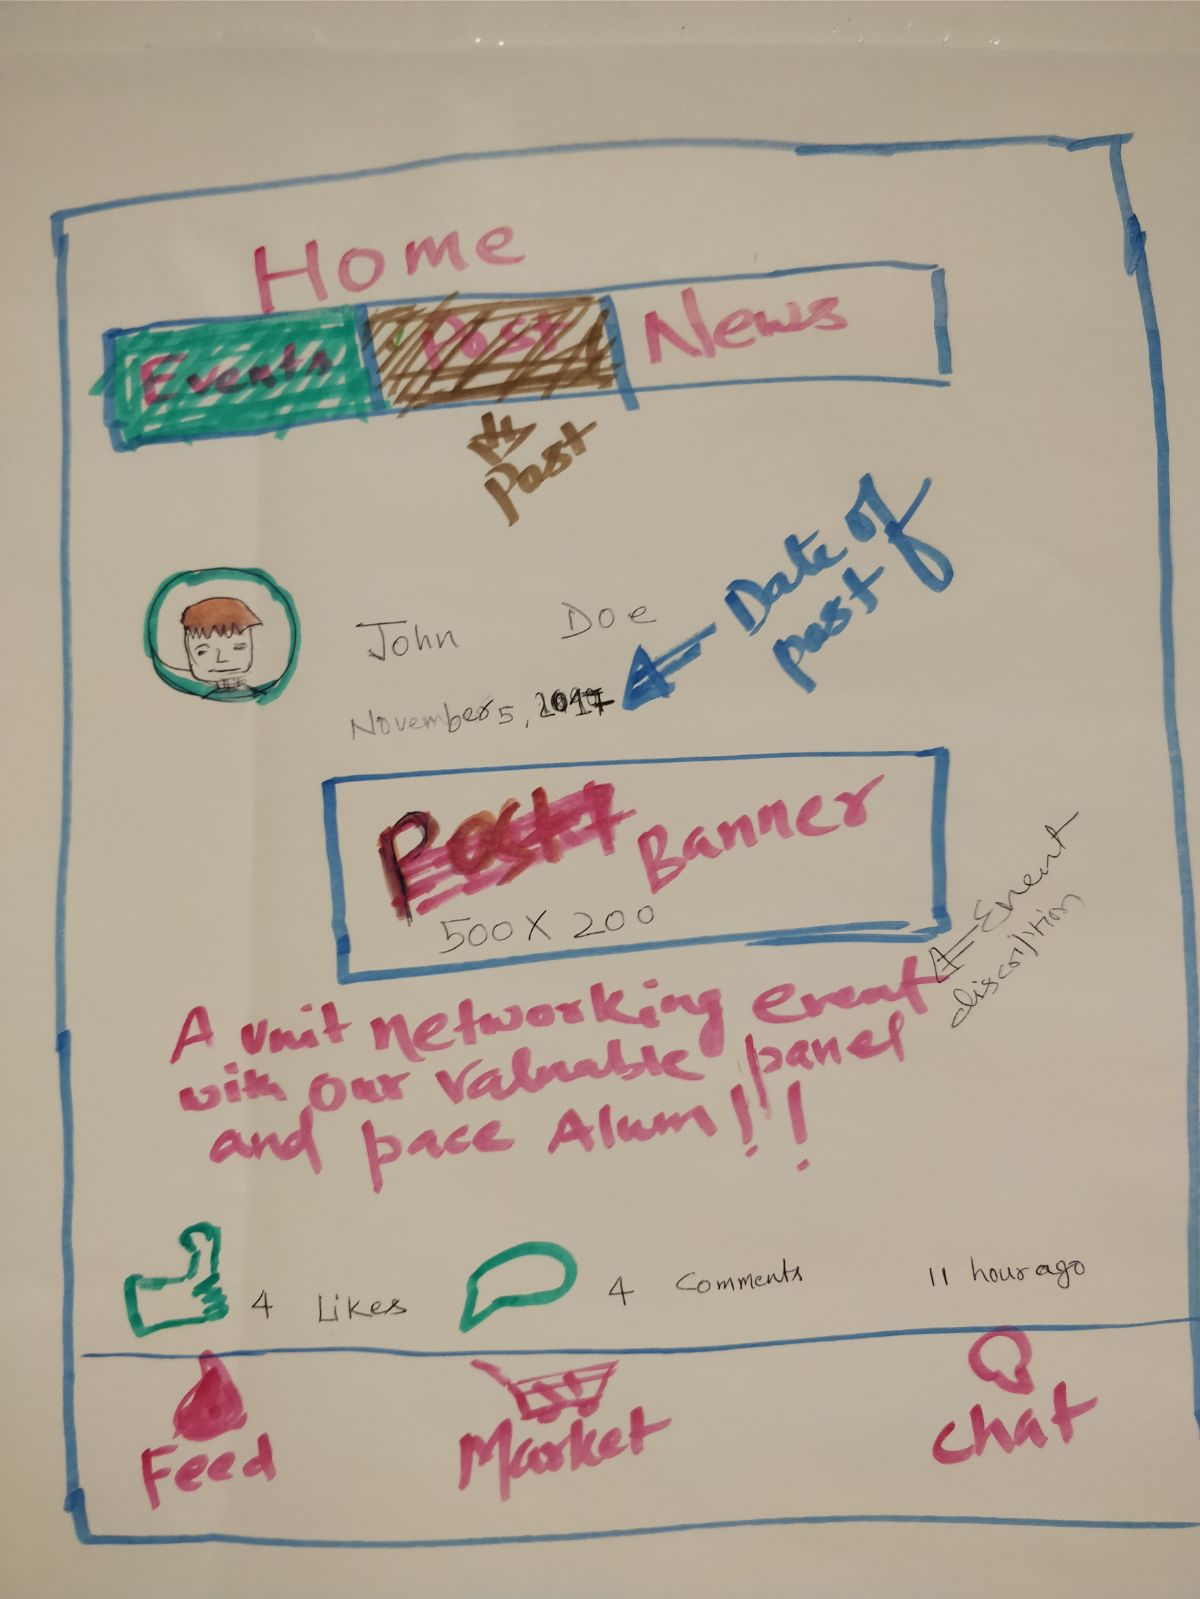 Home
Events Post News
Post
Date of
post
John Doe
November 5,
Banner
500 X 200
Event
discription
A unit networking event
with our valuable panel
and pace Alum!!
4 Likes 4 Comments 11 hour ago
Feed Market Chat